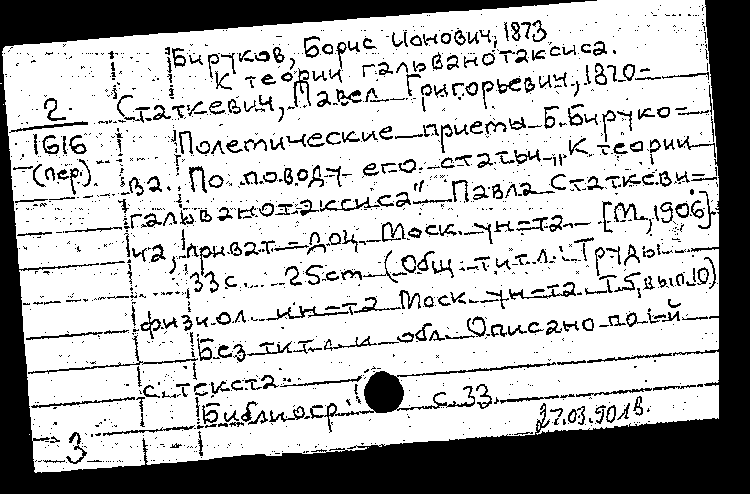 Бируков, Борис Ионович, 1873
К теории гальванотаксиса.
2 Статкевич, Павел Григорьевич, 1870-
1616 Полемические приемы Б. Бируко=
(пер). ва. По поводу его статьи „К теории
гальванотаксиса" Павла Статкеви=
ча, приват=доц. Моск. ун=та. [М., 1906].
33с. 25cm (Общ. тит. л.: Труды
физиол. ин=та Моск. ун=та. Т.5, вып.10)
Без тит. л. и обл. Описано по 1-й
с. текста.
Библиогр. с. 33.
3 27.03.90